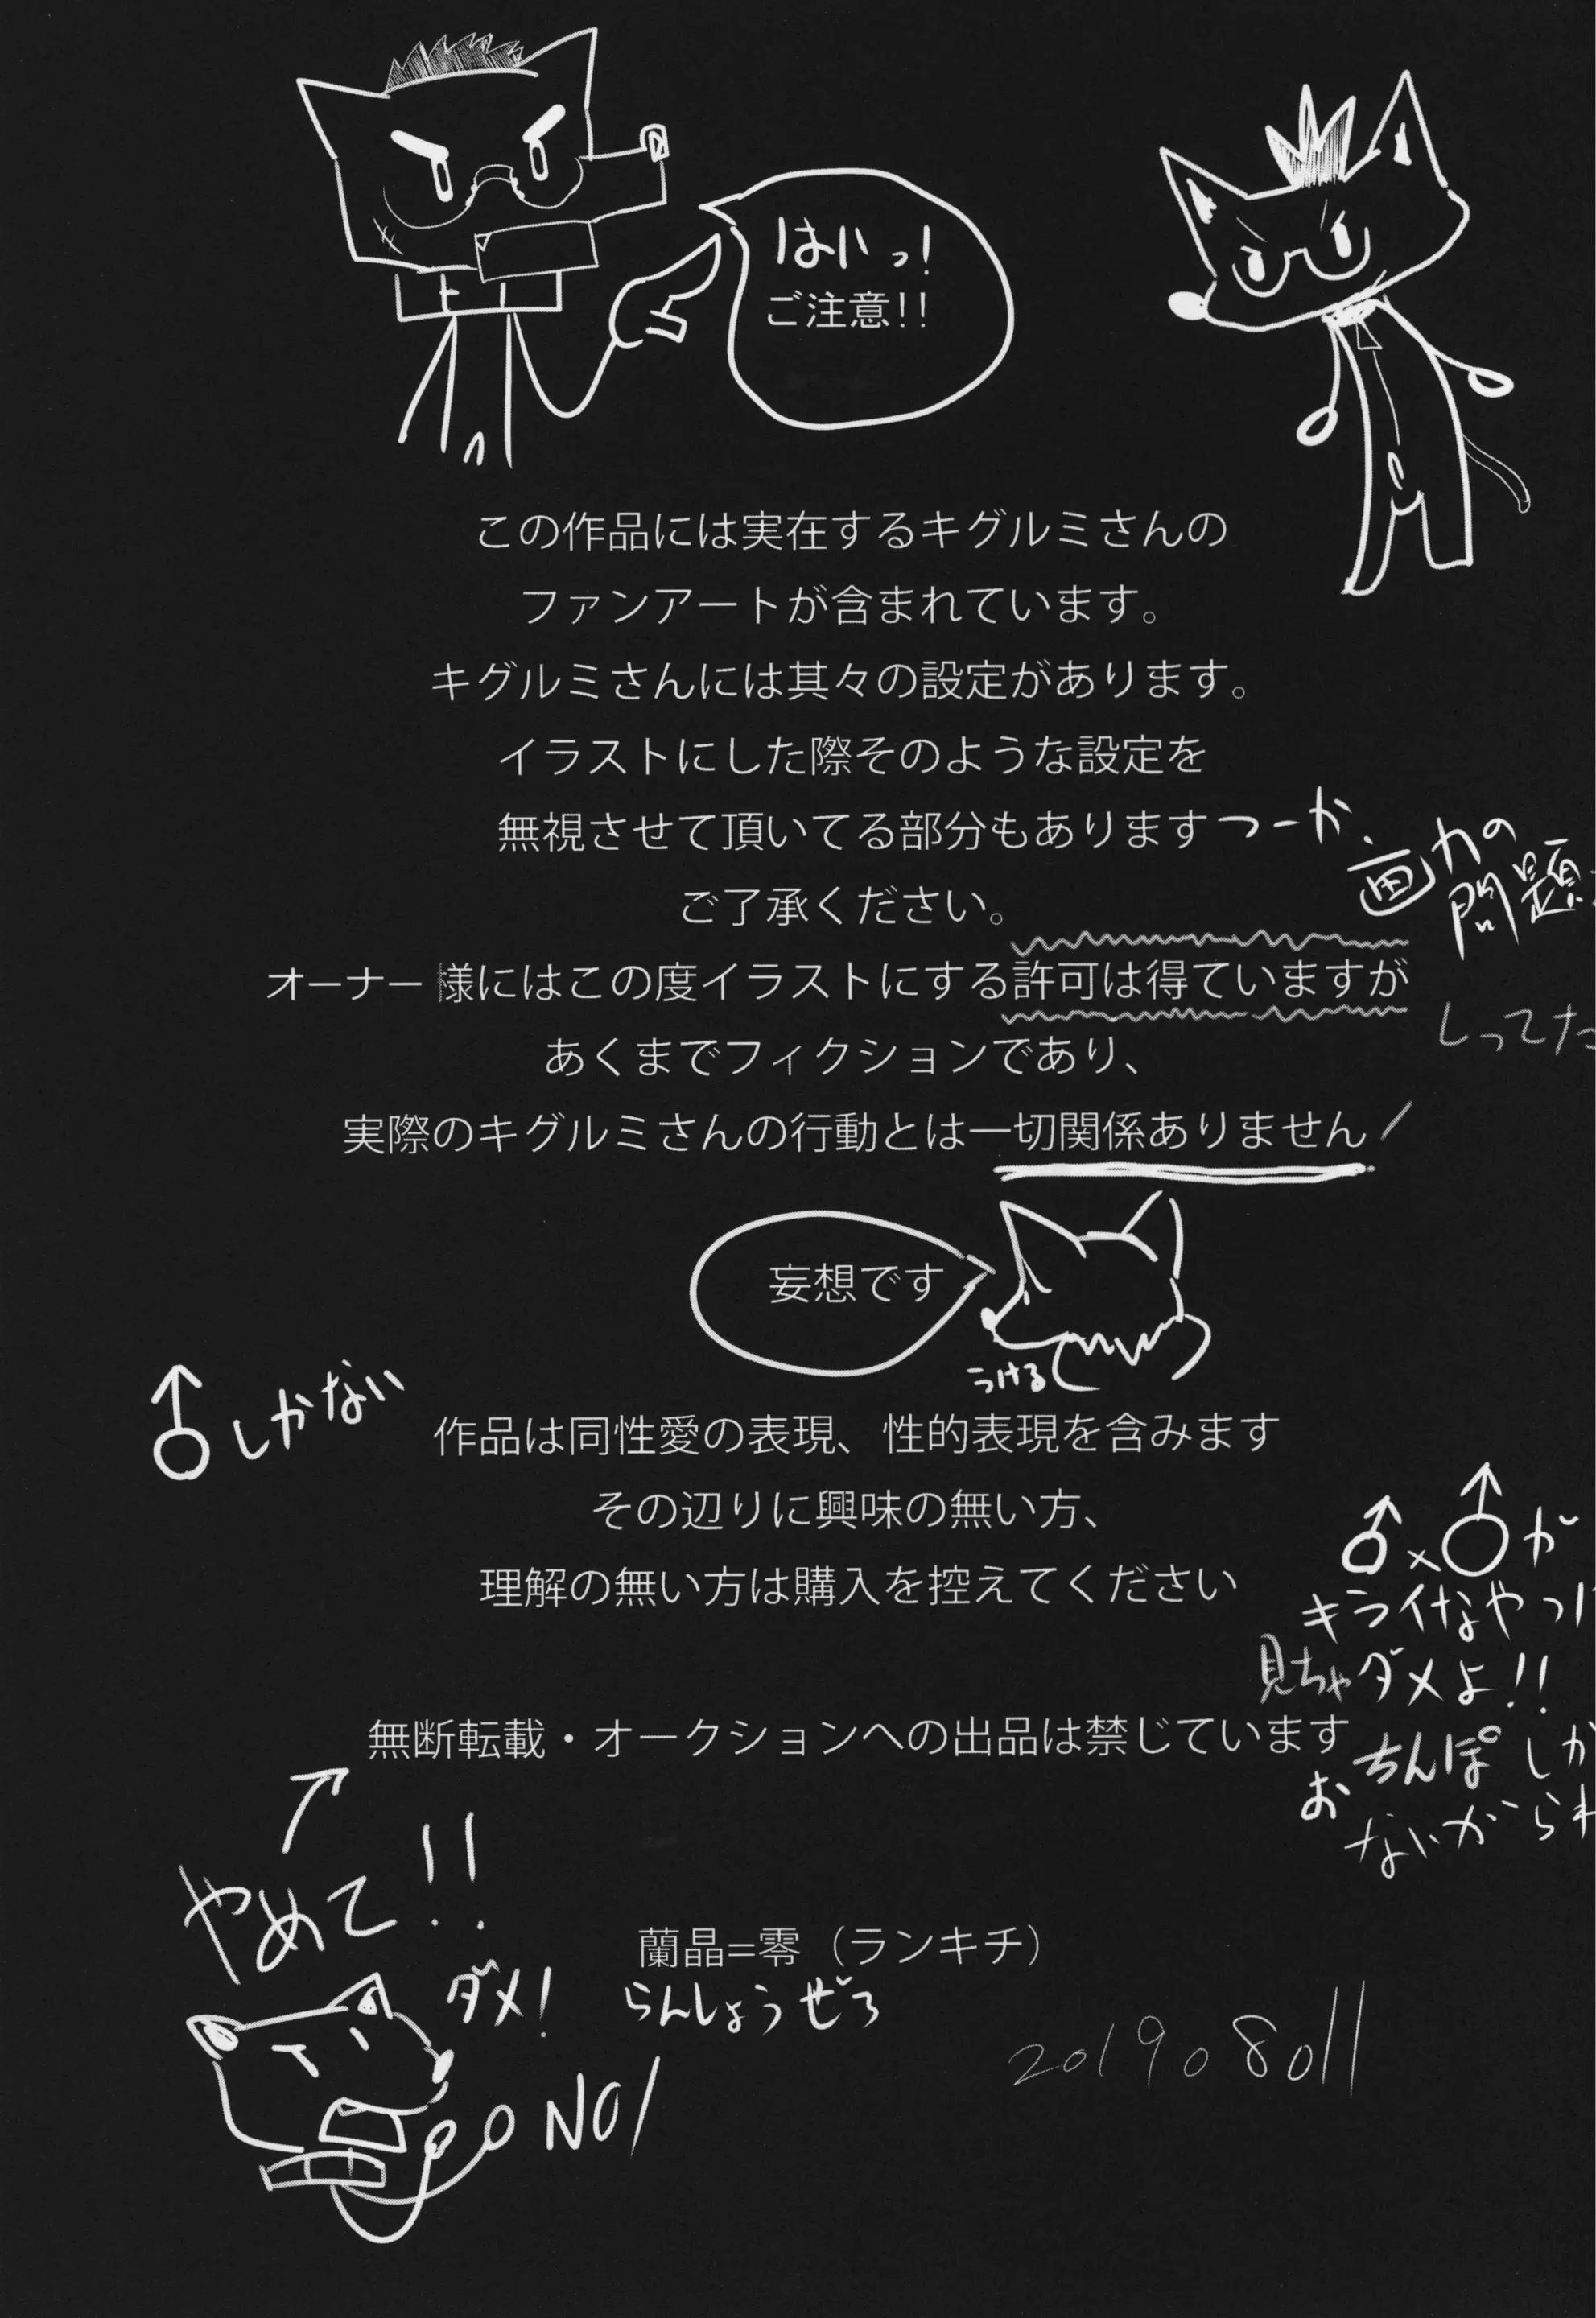 はいっ!
ご注意!!
この作品には実在するキグルミさんの
ファンアートが含まれています。
キグルミさんには其々の設定があります。
イラストにした際そのような設定を
無視させて頂いてる部分もあります
つーか、
画力の
問題
ご了承ください。
オーナー様にはこの度イラストにする許可は得ていますが
しってた
あくまでフィクションであり、
実際のキグルミさんの行動とは一切関係ありません
妄想です
うける
♂しかない
作品は同性愛の表現、性的表現を含みます
その辺りに興味の無い方、
理解の無い方は購入を控えてください
♂×♂が
キライなやつ
見ちゃダメよ!!
おちんぽしか
ないから
無断転載・オークションへの出品は禁じています
やめて!!
ダメ!
NO!
蘭晶=零（ランキチ）
らんしょうぜろ
20190811